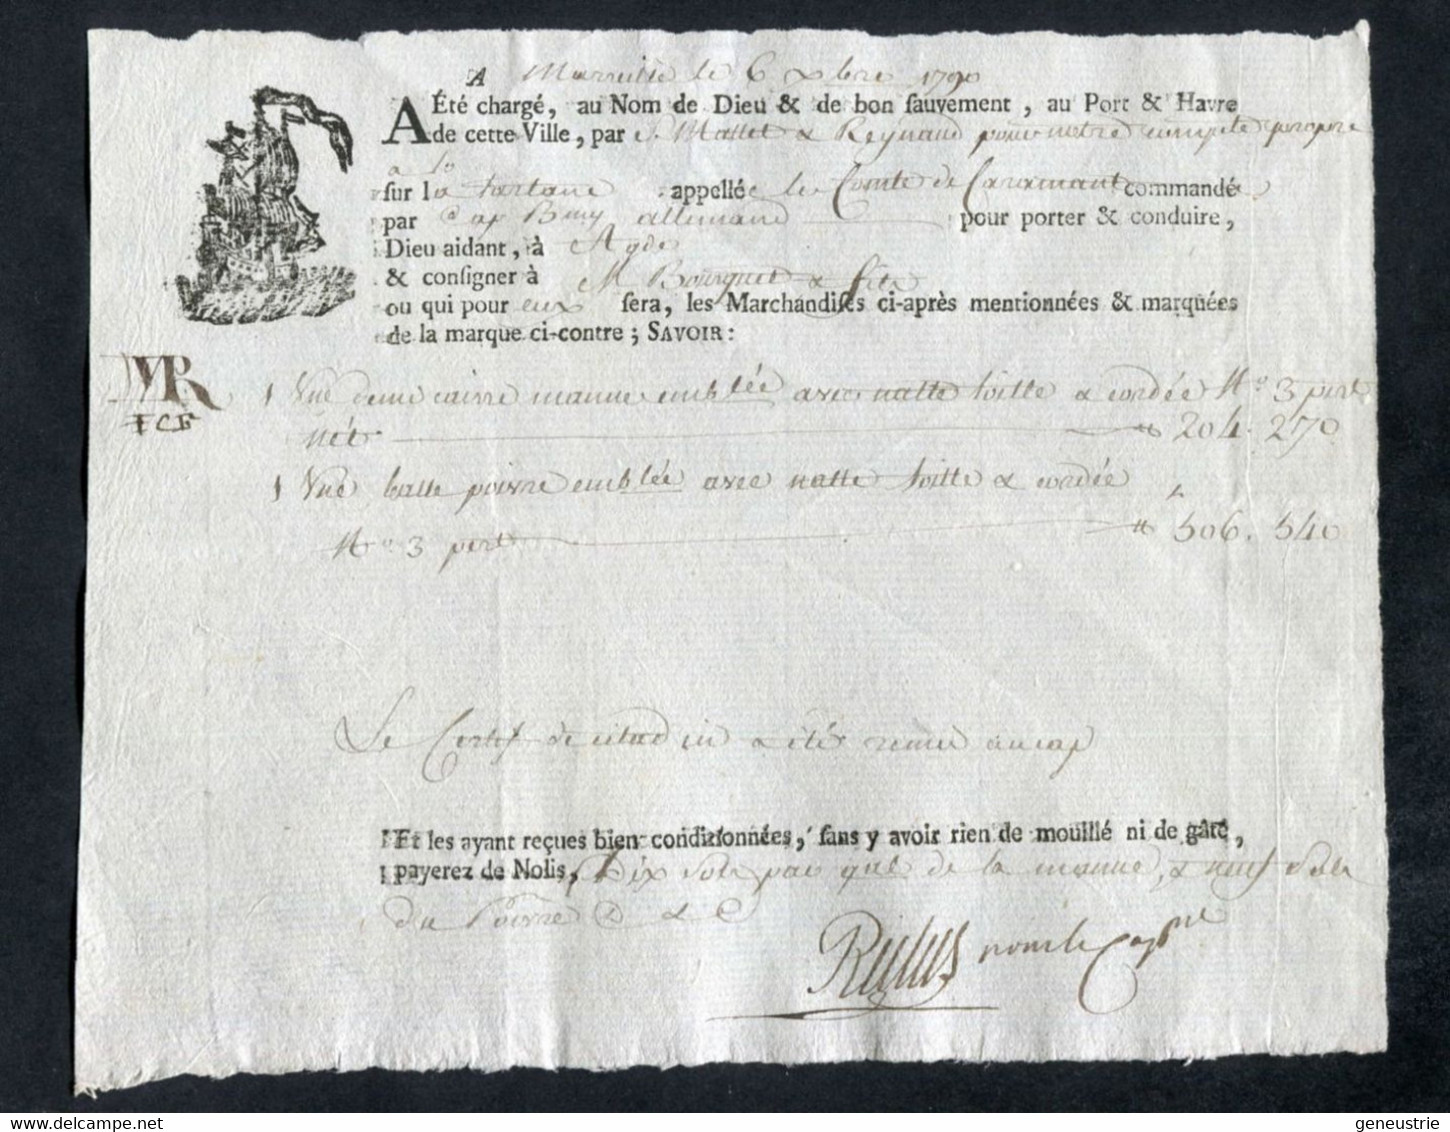 A Marseille le 6 xbre 1790
A Été chargé, au Nom de Dieu & de bon sauvement, au Port & Havre
de cette Ville, par Mallet & Reynaud pour notre compte propre
sur la tartane appellée le Comte de Caramant commandé
par Cap Bmy allemand pour porter & conduire,
Dieu aidant, à Agde
& consigner à M Bourguet & fils
ou qui pour eux sera, les Marchandises ci-après mentionnées & marquées
de la marque ci-contre ; SAVOIR :
MR
FCF
1 Une demi caisse manne emblée avec natte toille & cordée N° 3 pert
Net 204. 270
1 Une balle poivre emblée avec natte toille & cordée
N° 3 pert 506. 540
Le Certif de a été remis au cap
Et les ayant reçues bien conditionnées, sans y avoir rien de mouillé ni de gâté,
payerez de Nolis, Dix sols par qal de la manne, & neuf sols
du Poivre
pour le Cap ne
geneustrie